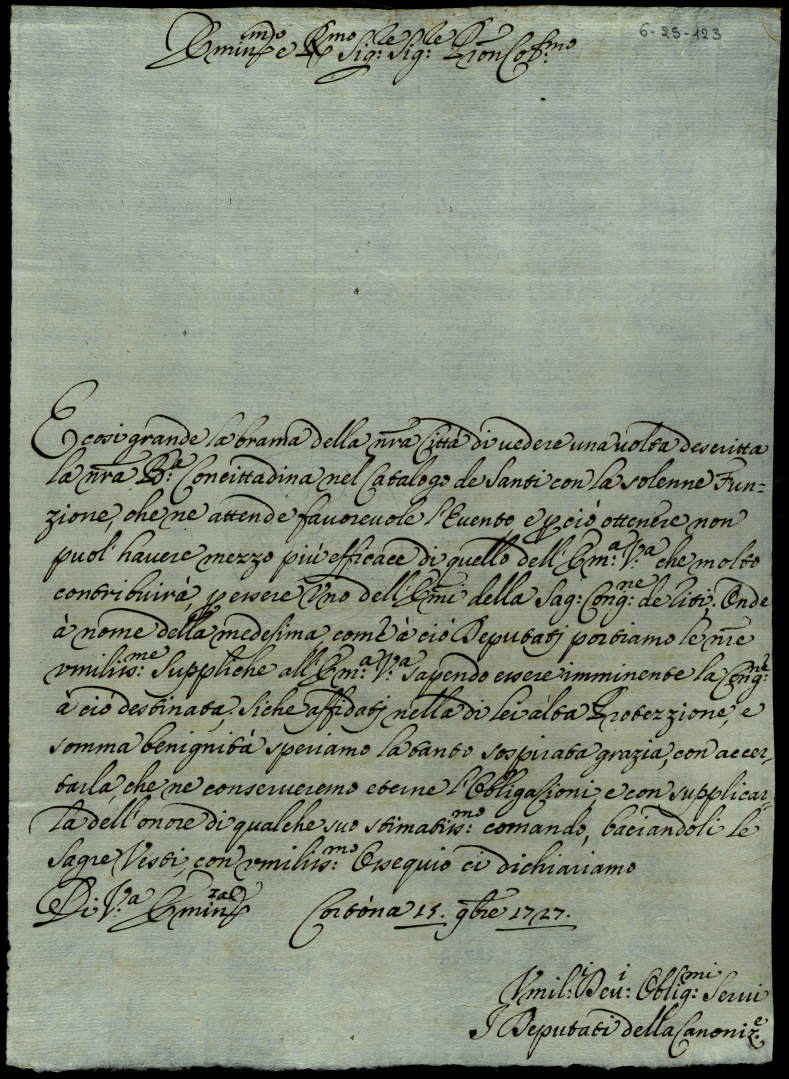 6-25-123
Emin.mo e Rmo Sig:re Sig:re Pron Col.mo
E cosi grande la brama della nr̄a Città di vedere una volta descritta
la nr̄a B:a Concittadina nel Catalogo de Santi con la solenne Fun=
zione, che ne attende favorevole l'Evento e p ciò ottenere non
puol' havere mezzo più efficace di quello dell'Em:a V:a che molto
contribuirà, p essere Uno dell'Emi della Sag: Cong:ne de Riti. Onde
à nome della medesima, com'è à ciò Deputatj portiamo le nr̄e
vmiliss:me Suppliche all'Em:a V:a sapendo essere imminente la Cong:ne
à ciò destinata. Siche affidatj nella di lei alta Protezzione, e
somma benignità speriamo la tanto sospirata grazia, con accer,
tarla, che ne conserveremo eterne l'Obligazioni, e con supplicar=
la dell'onore di qualche suo stimatiss:mo comando, baciandoli le
Sagre Vesti, con vmiliss:mo Ossequio ci dichiariamo
Di V:a Eminza Cortona 15. 9bre 1727.
Vmil:i Dev:i Oblig:mi Servi
I Deputati della Canoniz:e